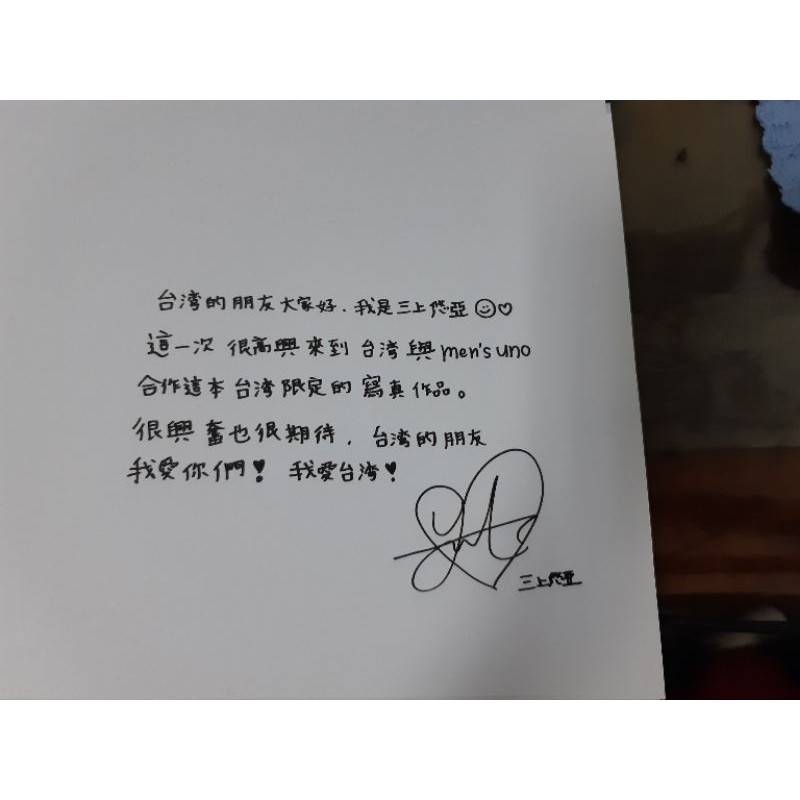 台湾的朋友大家好.我是三上悠亞☺♡
這一次 很高興來到台湾與men's uno
合作這本台湾限定的寫真作品。
很興奮也很期待,台湾的朋友
我愛你們! 我愛台湾!
三上悠亞